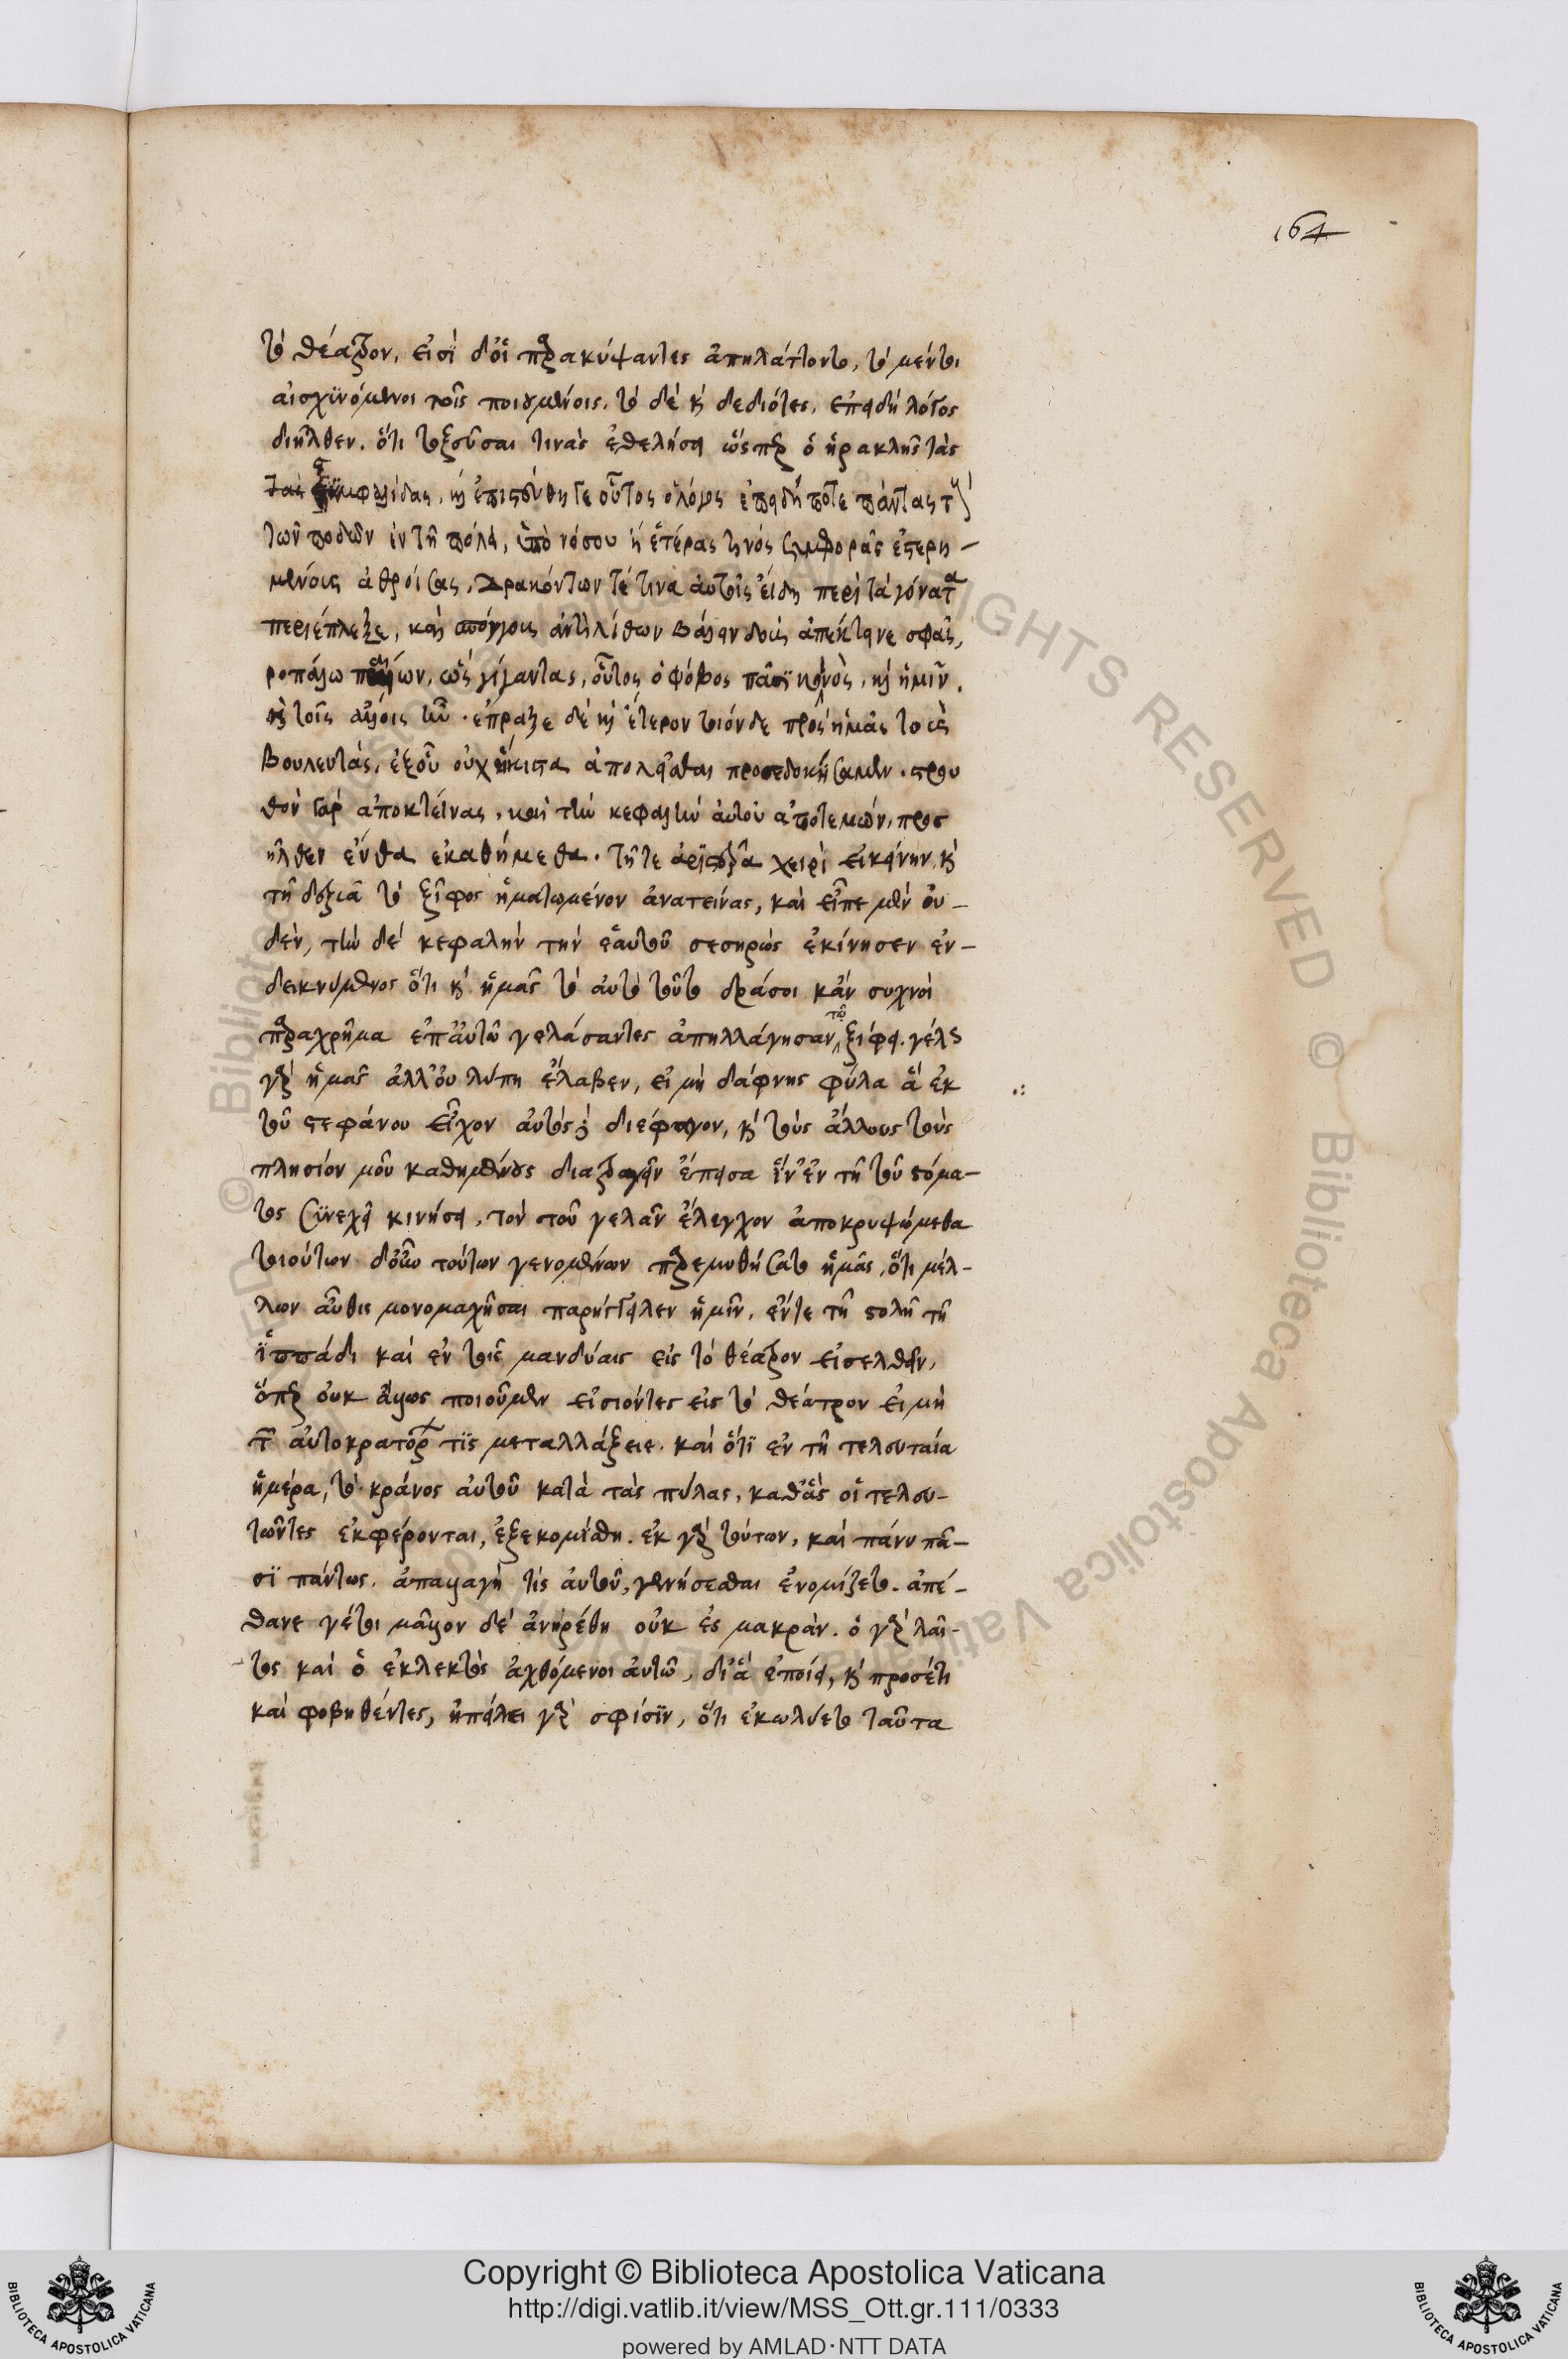 164
τὸ θέατρον, εἰσὶ δ' οἳ παρακύψαντες ἀπηλάττοντο, τὸ μέν τι
αἰσχϋνόμενοι τοῖς ποιουμένοις, τὸ δὲ κ δεδιότες, ἐπειδὴ λόγος
διῆλθεν, ὅτι τοξεῦσαι τινὰς ἐθελήσει ὥσπερ ὁ ἡρακλῆς τὰς
στυμφαλίδας, καὶ ἐπιστεύθη γε οὗτος ὁ λόγος ἐπειδή ποτε πάντας τοὺς
τῶν ποδῶν ἐν τῇ πόλει, ὑπὸ νόσου ἢ ἑτέρας τινὸς συμφορᾶς ἐστερη-
μένους ἀθροίσας, δρακόντων τέ τινα αὐτοῖς εἴδη περὶ τὰ γόνατα
περιέπλεξε, καὶ σπόγγους ἀντὶ λίθων βάλλειν δοὺς ἀπέκτεινε σφᾶς,
ροπάλω παίων, ὡς γίγαντας, οὗτος ὁ φόβος πᾶσϊ κοινὸς, καὶ ἡμῖν,
καὶ τοῖς ἄλλοις ἦν. ἔπραξε δὲ καὶ ἕτερον τοιόνδε πρὸς ἡμᾶς τοὺς
βουλευτὰς, ἐξ οὗ οὐχ ἥκιστα ἀπολεῖσθαι προσεδοκήσαμεν. στρου
θὸν γὰρ ἀποκτείνας, καὶ τὴν κεφαλὴν αὐτοῦ ἀποτεμών, προσ
ῆλθεν ἔνθα ἐκαθήμεθα. τῇ τε ἀρϊστερᾶ χειρὶ ἐκείνην, κ
τῇ δεξιᾶ τὸ ξῖφος ἡματωμένον ἀνατείνας, καὶ εἶπε μὲν οὐ-
δέν, τὴν δὲ κεφαλὴν τὴν ἑαυτοῦ σεσηρὼς ἐκίνησεν ἐν-
δεικνύμενος ὅτι κ ἡμᾶς τὸ αὐτὸ τοῦτο δράσοι κἂν συχνοὶ
παραχρῆμα ἐπ' αὐτῶ γελάσαντες ἀπηλλάγησαν τῷ ξίφει. γέλως
γὰρ ἡμᾶς ἀλλ' οὐ λύπη ἔλαβεν, εἰ μὴ δάφνης φύλα ἃ ἐκ
τοῦ στεφάνου εἶχον αὐτός διέφαγον, κ τοὺς ἄλλους τοὺς
πλησίον μοῦ καθημένους διατραγεῖν ἔπεισα ἵν' ἐν τῇ τοῦ στόμα-
τος συνεχεῖ κινήσει, τὸν τοῦ γελᾶν ἔλεγχον ἀποκρυψώμεθα
τοιούτων δ' οὖν τούτων γενομένων παρεμυθήσατο ἡμᾶς, ὅτι μέλ-
λων αὖθις μονομαχῆσαι παρήγγειλεν ἡμῖν, ἔν τε τῇ στολῇ τῇ
ἱππάδι καὶ ἐν ταῖς μανδύαις εἰς τὸ θέατρον εἰσελθεῖν,
ὅπερ οὐκ ἄλλως ποιοῦμεν εἰσιόντες εἰς τὸ θέατρον εἰ μὴ
τῶν αὐτοκρατόρων τϊς μεταλλάξειε. καὶ ὅτϊ ἐν τῇ τελευταία
ἡμέρα, τὸ κράνος αὐτοῦ κατὰ τὰς πύλας, καθ' ἃς οἱ τελευ-
τῶντες ἐκφέρονται, ἐξεκομίσθη. ἐκ γὰρ τούτων, καὶ πάνυ πᾶ-
σϊ πάντως, ἀπαλλαγὴ τὶς αὐτοῦ, γενήσεσθαι ἐνομίζετο. ἀπέ-
θανε γέ τοι μᾶλλον δὲ ἀνῃρέθη οὐκ ἐς μακράν. ὁ γὰρ λαῖ-
τος καὶ ὁ ἐκλεκτὸς ἀχθόμενοι αὐτῶ, δι' ἃ ἐποίει, κ προσέτι
καὶ φοβηθέντες, ἠπείλει γὰρ σφίσϊν, ὅτι ἐκωλύετο ταῦτα
Copyright © Biblioteca Apostolica Vaticana
http://digi.vatlib.it/view/MSS_Ott.gr.111/0333
powered by AMLAD·NTT DATA